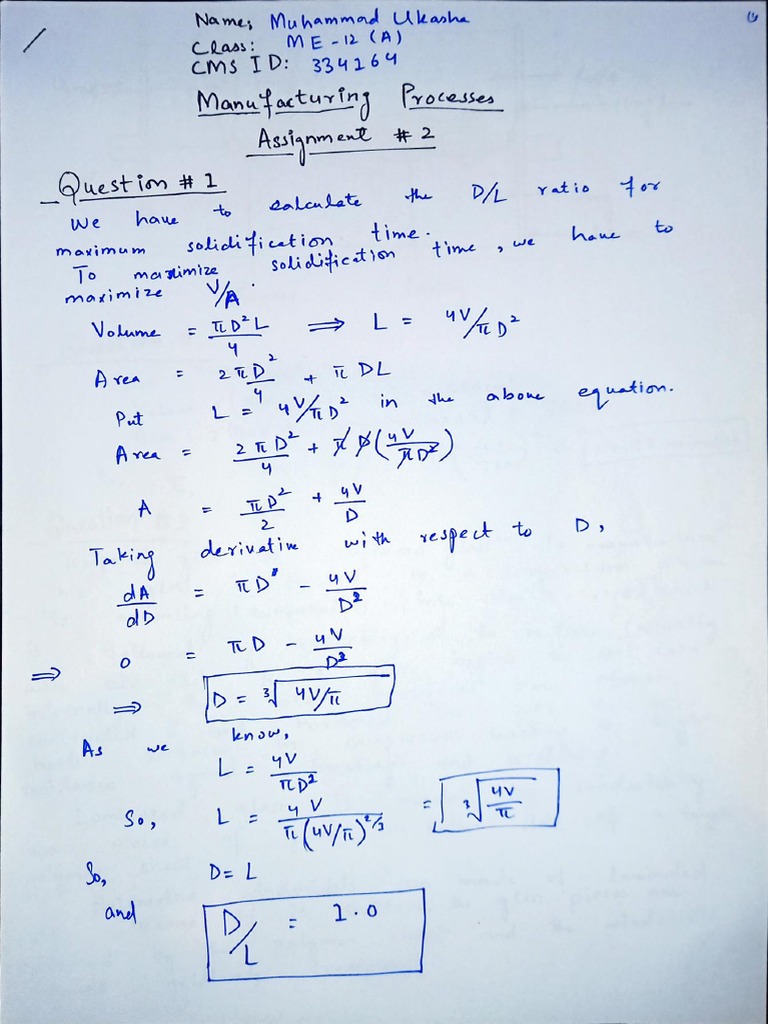 Name: Muhammad Ukasha
Class: ME-12 (A)
CMS ID: 334264
Manufacturing Processes
Assignment # 2
Question # 1
We have to calculate the D/L ratio for
maximum solidification time.
To maximize solidification time, we have to
maximize V/A.
Volume = πD²L/4 ⟹ L = 4V/πD²
Area = 2πD²/4 + πDL
Put L = 4V/πD² in the above equation.
Area = 2πD²/4 + πD(4V/πD²)
A = πD²/2 + 4V/D
Taking derivative with respect to D,
dA/dD = πD - 4V/D²
⟹ 0 = πD - 4V/D²
⟹ D = ∛4V/π
As we know,
L = 4V/πD²
So, L = 4V/π(4V/π)^2/3 = ∛4V/π
So, D = L
and D/L = 1.0